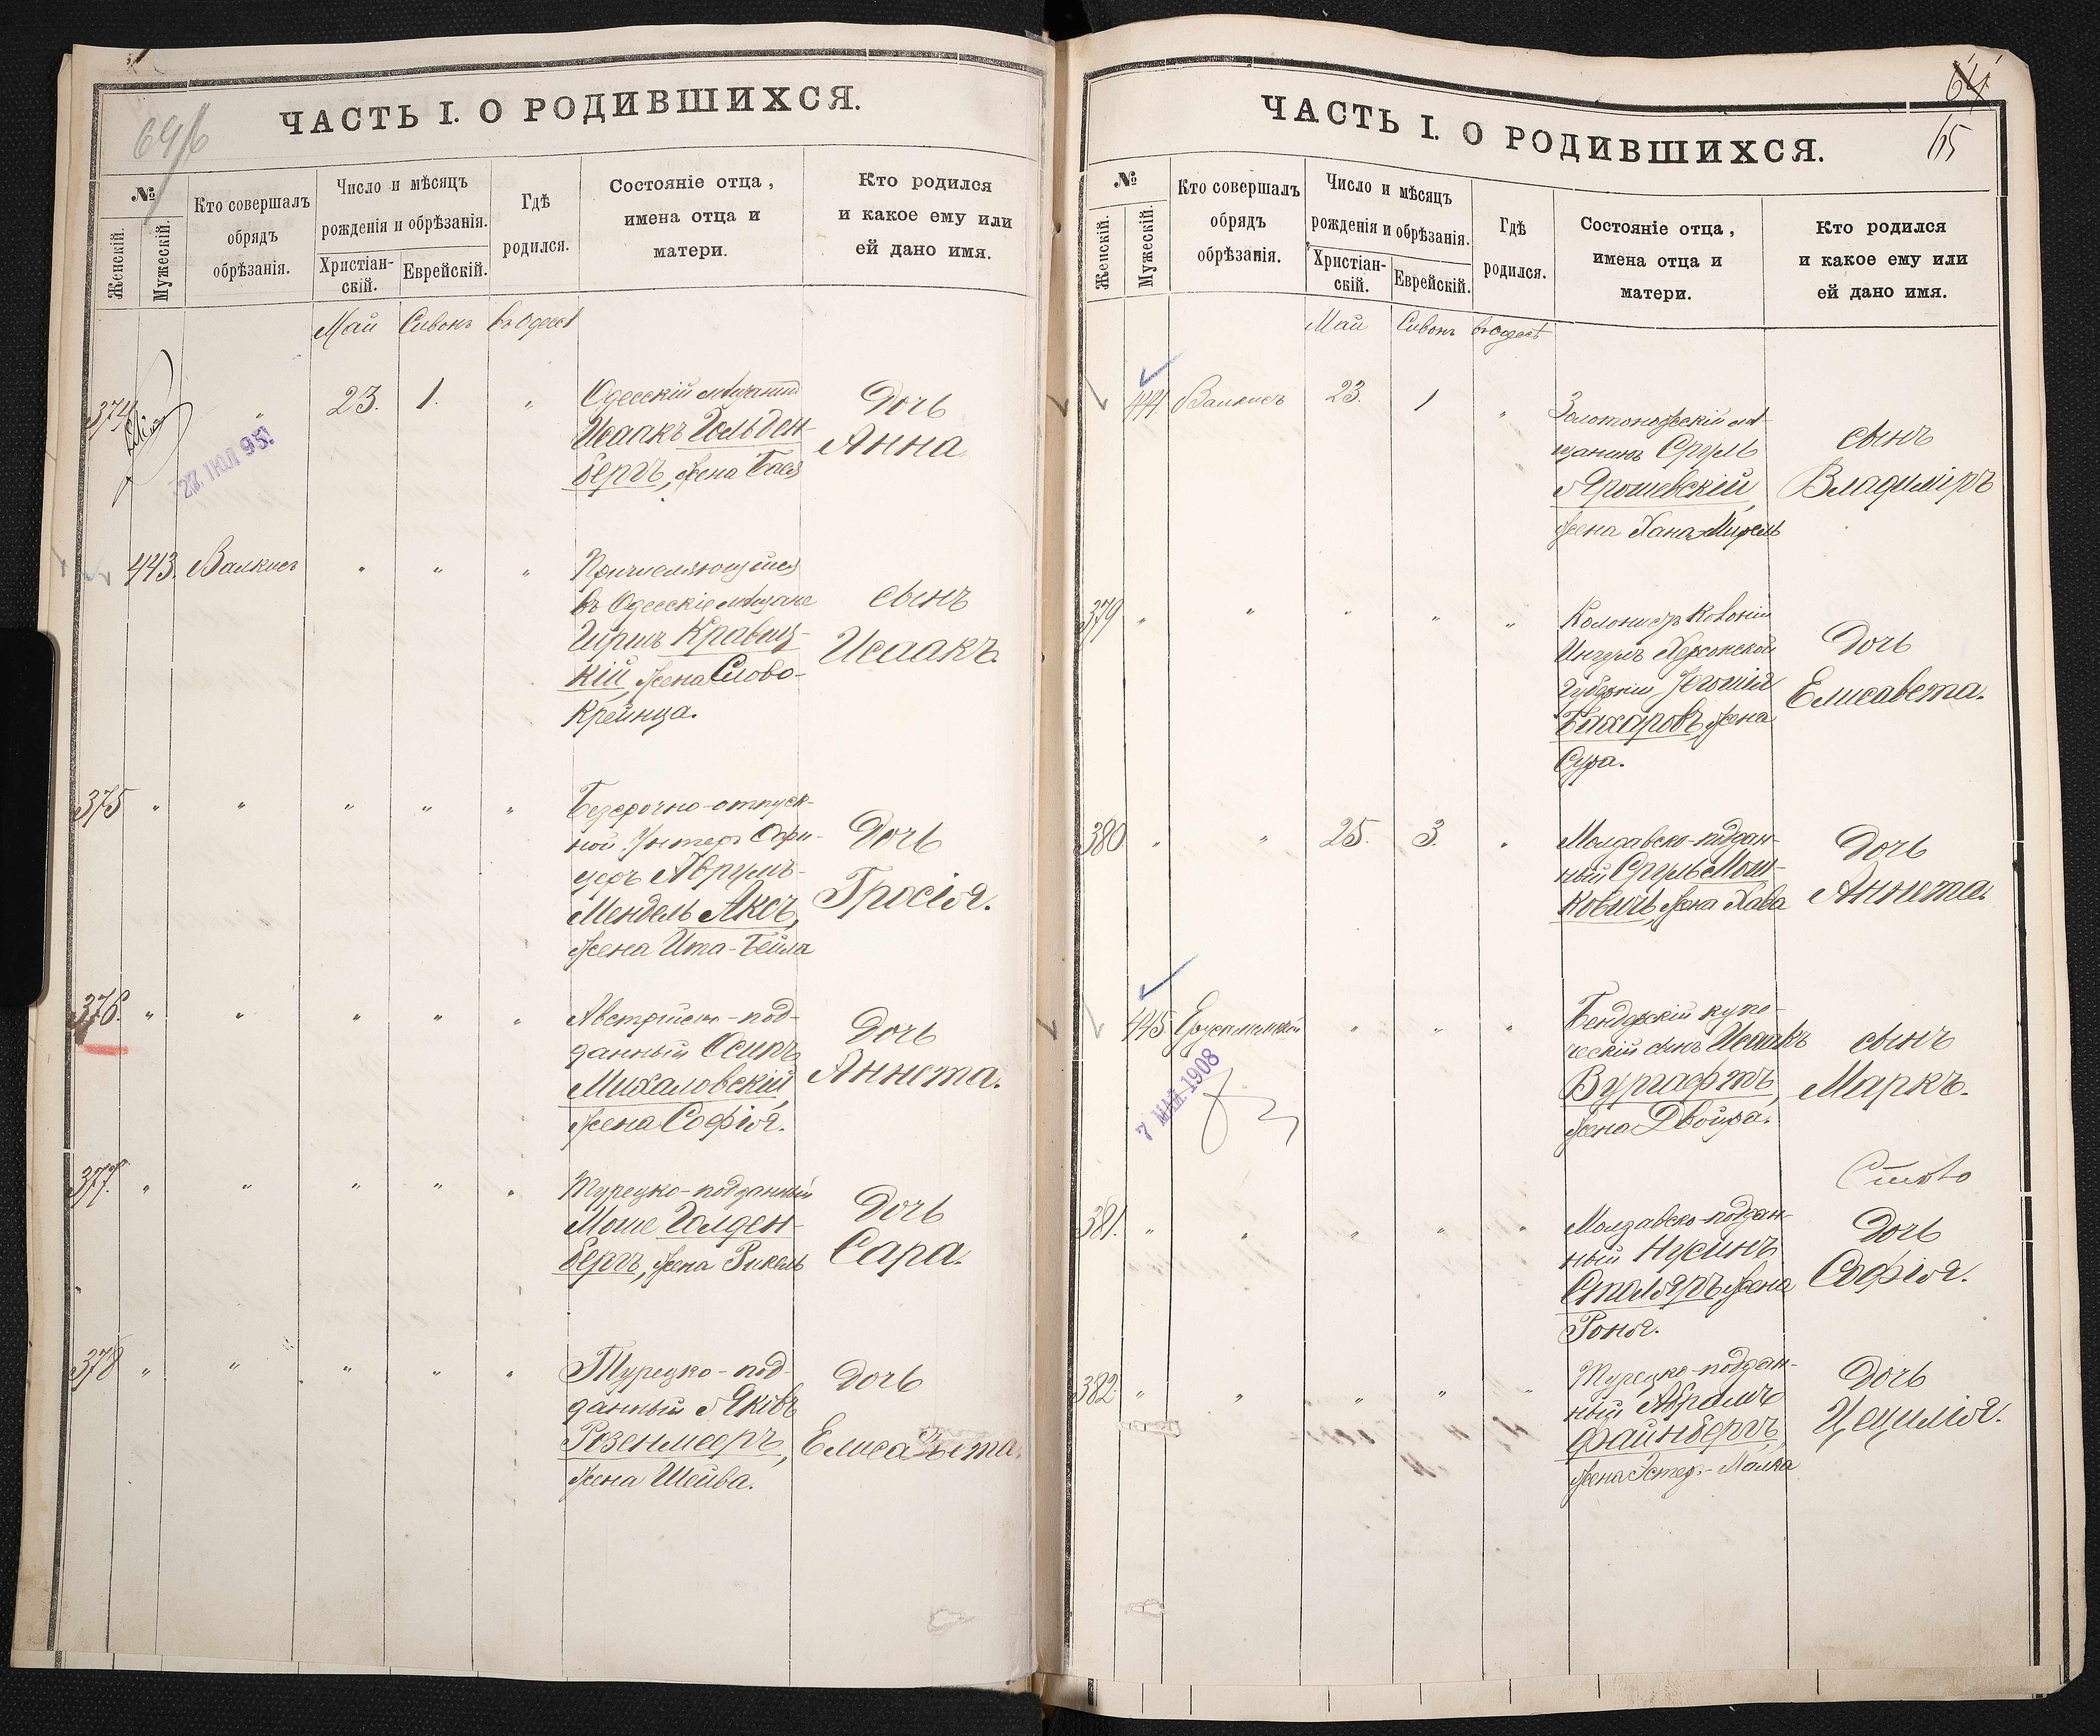 ЧАСТЬ I. О РОДИВШИХСЯ.
№
Женскій.
Мужескій.
Кто совершалъ
обрядъ
обрѣзанія.
Число и мѣсяцъ
рожденія и обрѣзанія.
Христіан-
скій.
Еврейскій.
Гдѣ
родился.
Состояніе отца,
имена отца и
матери.
Кто родился
и какое ему или
ей дано имя.
Май Сивонъ въ Одессѣ
374 " 23. 1. "
27. ІЮЛ 95
Одесскій мѣщанинъ
Исаакъ Гольден-
бергъ, жена Бася
Дочь
Анна
443. Валкисъ " " "
Причисляющійся
въ Одесскіе мѣщане
Гиршъ Кравиц-
кій, жена Слово-
Крейнца.
сынъ
Исаакъ.
375 " " " " "
Безсрочно-отпуск-
ной Унтеръ Офи-
церъ Аврумъ-
Мендель Аксъ,
жена Ита-Бейла
Дочь
Тросія.
376. " " " " "
Австрійско-под-
данный Осипъ
Михаловскій,
жена Софія.
Дочь
Аннета.
377. " " " " "
Турецко-подданный
Моше Голден-
бергъ, жена Рикель
Дочь
Сара.
378 " " " " "
Турецко-под-
данный Яковъ
Розенмееръ,
жена Шейва.
Дочь
Елисавета.
64
65
ЧАСТЬ I. О РОДИВШИХСЯ.
№
Женскій.
Мужескій.
Кто совершалъ
обрядъ
обрѣзанія.
Число и мѣсяцъ
рожденія и обрѣзанія.
Христіан-
скій.
Еврейскій.
Гдѣ
родился.
Состояніе отца,
имена отца и
матери.
Кто родился
и какое ему или
ей дано имя.
Май Сивонъ въ Одессѣ
444. Валкисъ 23. 1 "
Золотоношскій мѣ-
щанинъ Сруль
Ярошевскій,
жена Хана-Мирель
сынъ
Владиміръ
379 " " " " "
Колонистъ Колоніи
Ингулъ Херсонской
Губерніи
Бахаровъ, жена
Сура.
Дочь
Елисавета.
380. " " 25. 3. "
Молдавско-поддан-
ный Сруль Мош-
ковичъ, жена Хава
Дочь
Аннета.
445 " " "
7 МАЙ 1908
Бендерскій купе-
ческій сынъ Исаакъ
Вургафтъ,
жена Двойра.
сынъ
Маркъ.
381. " " " " "
Молдавско-поддан-
ный Нусинъ
Столяръ, жена
Роня.
Дочь
Софія.
382. " " " " "
Турецко-поддан-
ный Абрамъ
Файнбергъ,
жена Эстеръ-Малка
Дочь
Цецилія.